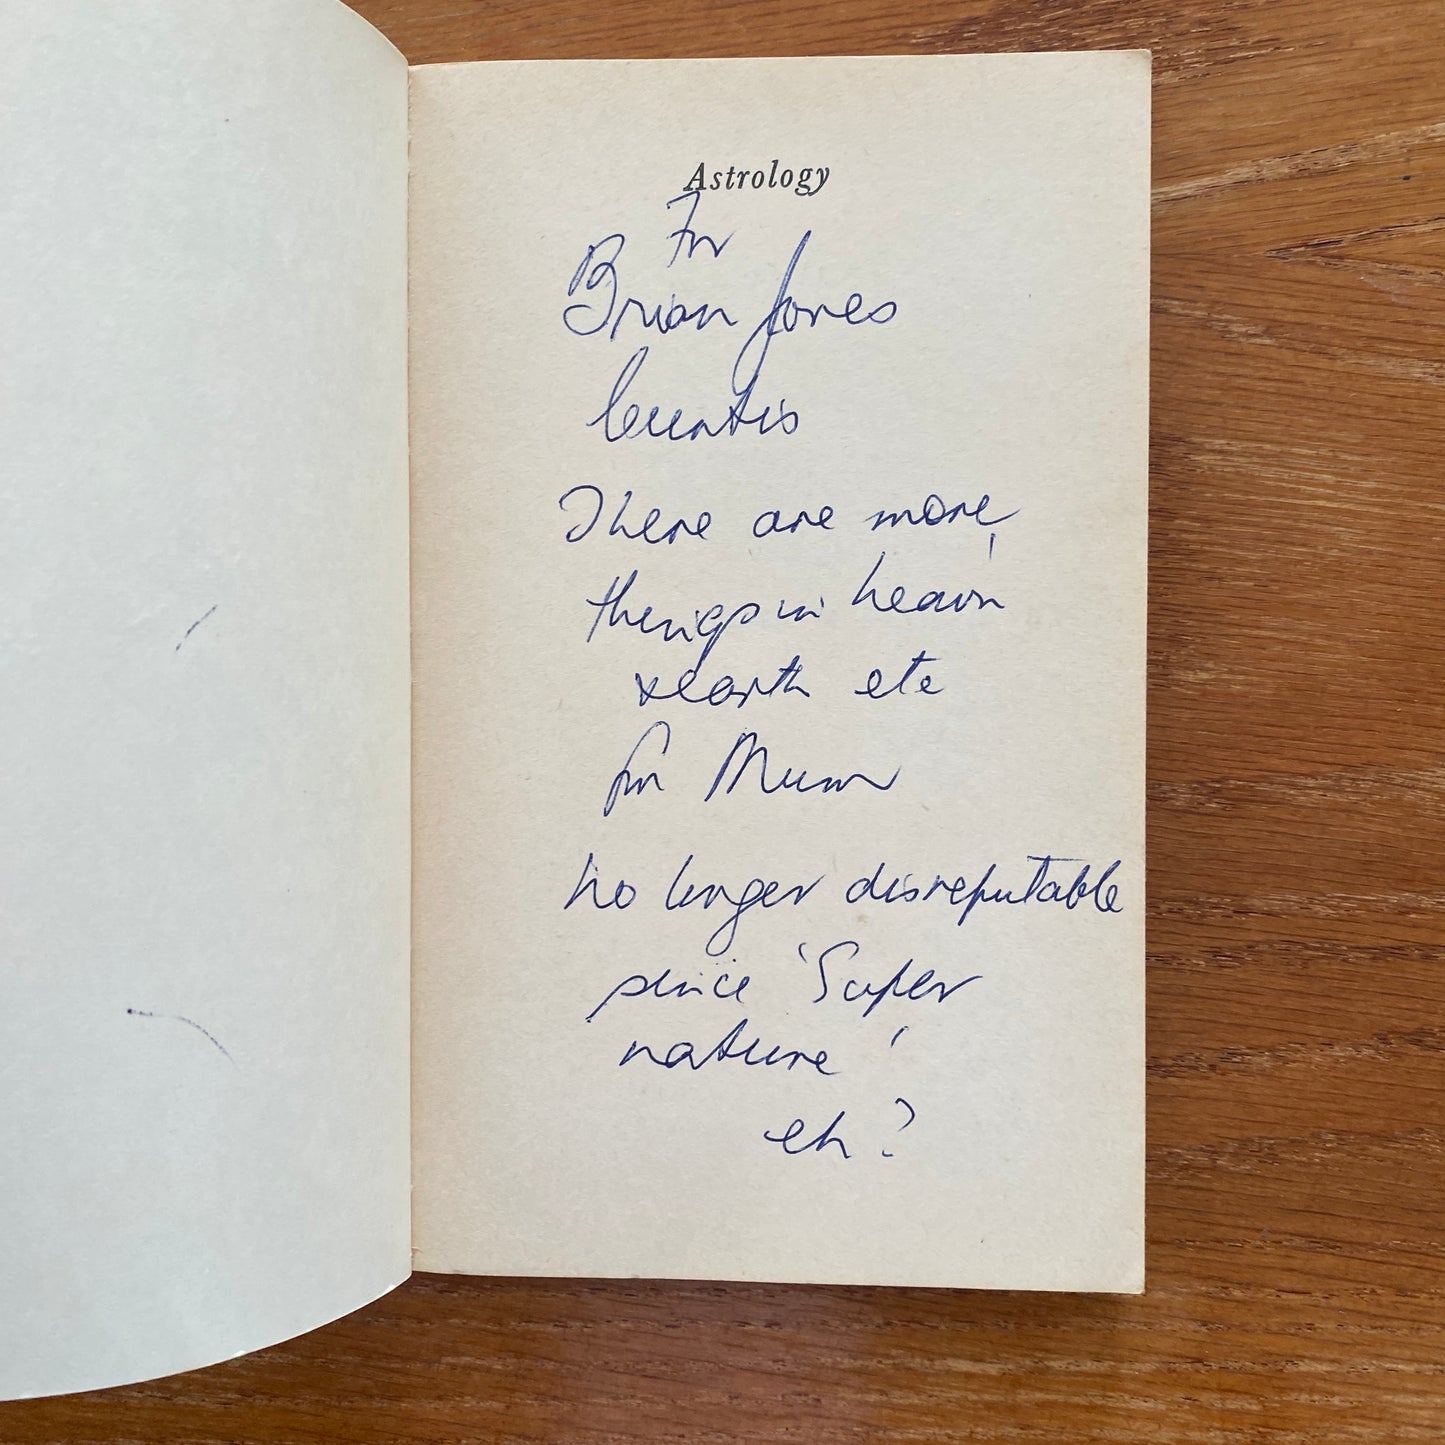 Astrology
For
Brian Jones
There are more
things in heav'n
& earth etc
for Mum
no longer disreputable
since 'Super
nature'
eh?